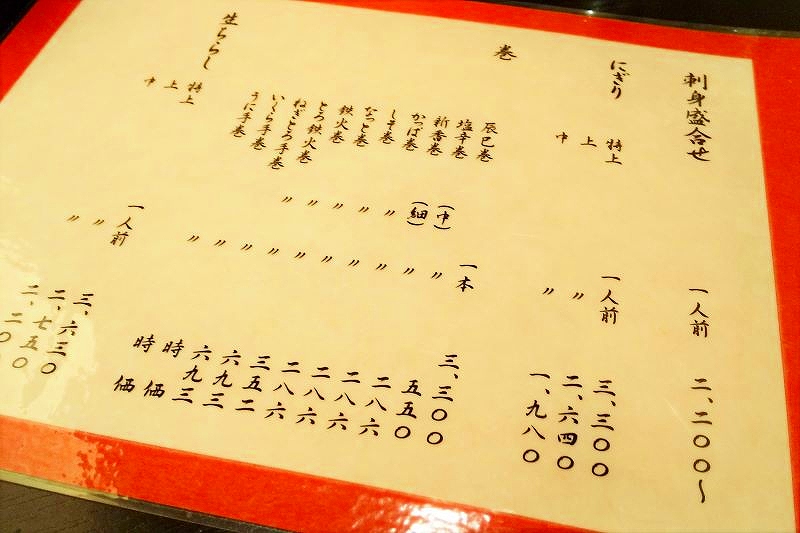 刺身盛合せ 一人前 二、二〇〇〜
にぎり 特上 一人前 三、三〇〇
上 〃 二、六四〇
中 〃 一、九八〇
巻
辰巳巻 一本 三、三〇〇
塩辛巻 (中) 〃 五五〇
新香巻 (細) 〃 二八六
かっぱ巻 〃 〃 二八六
しそ巻 〃 〃 二八六
なっと巻 〃 〃 二八六
鉄火巻 〃 〃 三五二
とろ鉄火巻 〃 〃 六九三
ねぎとろ手巻 〃 六九三
いくら手巻 〃 時価
うに手巻 〃 時価
生ちらし 特上 一人前 三、六三〇
上 〃 二、七五〇
中 〃 二、二〇〇